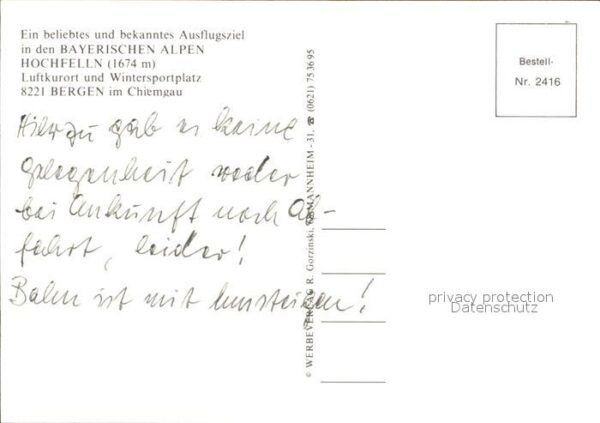 Ein beliebtes und bekanntes Ausflugsziel
in den BAYERISCHEN ALPEN
HOCHFELLN (1674 m)
Luftkurort und Wintersportplatz
8221 BERGEN im Chiemgau
Hierzu gab es keine
Gelegenheit weder
bei Ankunft noch Ab-
fahrt, leider!
Bahn ist mit Umsteigen!
© WERBEVERLAG R. Gorzinski, 68 MANNHEIM - 31, ☎ (0621) 75 36 95
Bestell-
Nr. 2416
privacy protection
Datenschutz